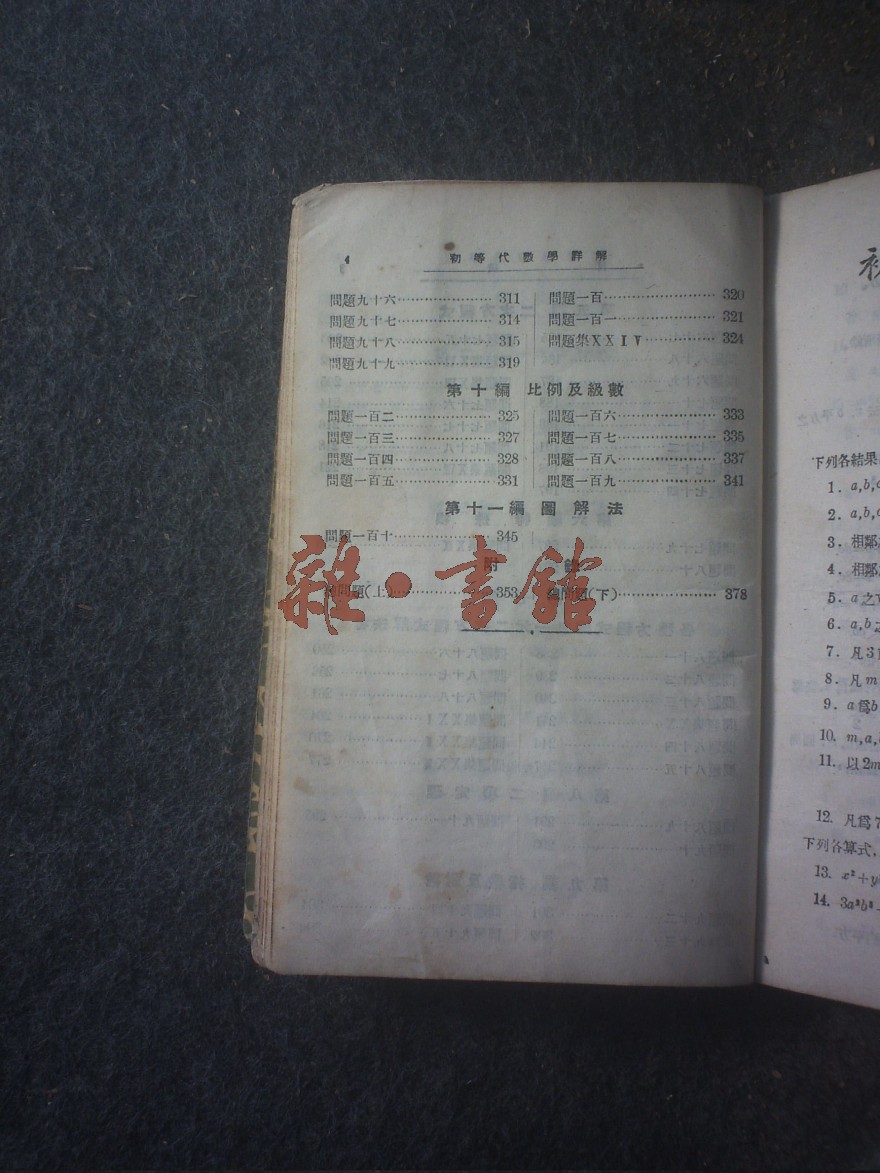 4
初等代數學詳解
問題九十六 311
問題九十七 314
問題九十八 315
問題九十九 319
問題一百 320
問題一百一 321
問題集XXIV 324
第十編 比例及級數
問題一百二 325
問題一百三 327
問題一百四 328
問題一百五 331
問題一百六 333
問題一百七 335
問題一百八 337
問題一百九 341
第十一編 圖解法
問題一百十 345
附
問題(上) 353
問題(下) 378
雜·書館
下列各結果
1. a,b,
2. a,b,
3. 相鄰
4. 相鄰
5. a之
6. a,b之
7. 凡3
8. 凡m
9. a爲b
10. m,a,
11. 以2m
12. 凡爲7
下列各算式,
13. x²+y
14. 3a³b³